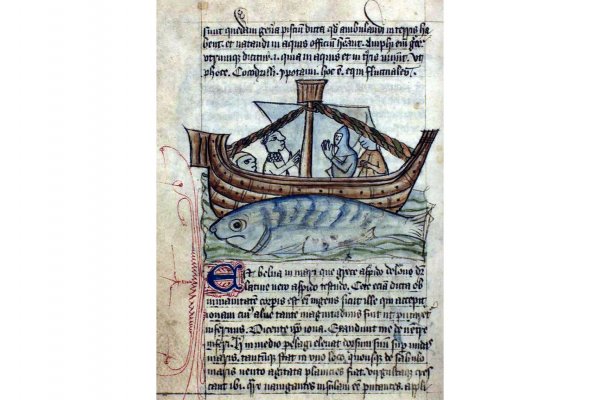 sunt quedam gen̄a pisciū dicta qd̄ ambulandi in terris ha
bent. et natandi in aquis officiū h̄ant. Amphi em̄ grece
utrumque dicitur .i. quia in aquis et in t̄ris uiuūt. vt
phoce. Cocodrilli. ypotami. hoc ē. equi fluctuales.
Est belua in mari que grece aspido delone dr̄
latine vero aspido testudo. Cete eciā dicta ob
immanitatem corpis est em̄ ingens sicut ille qui accepit
ionam cui⁹ aluus tante magnitudinis fuit ut putaret᷑
infernus. Dicente ip̄o iona. Exaudiuit me de uentre
inferi. Hec in medio pelagi eleuat dorsum suū sup̄ undas
maris. tantūque stat in uno loco. quousque de sabulo
maris vento agitata planicies fiat. virgultaque cres
cant ibi. Quare nauigantes insulam eē putantes. appli